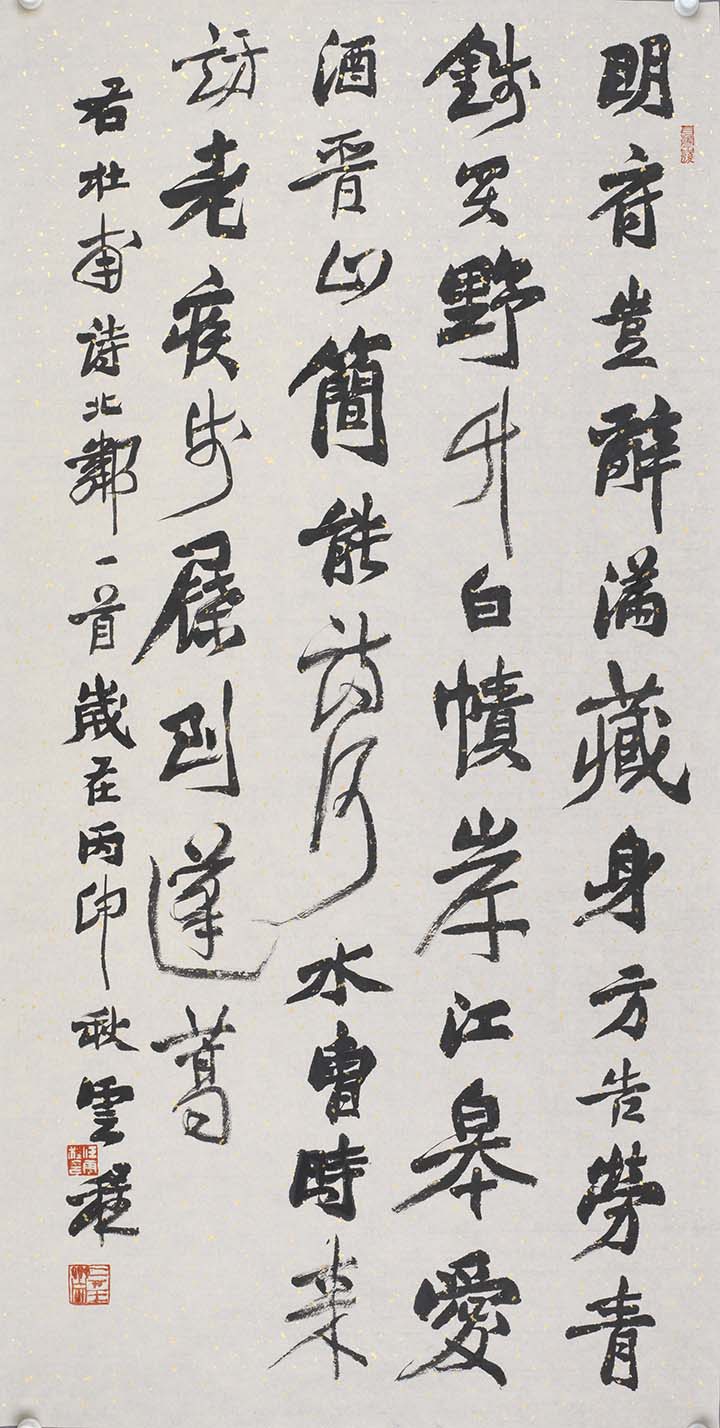 明府豈辭滿藏身方告勞青
錢買野竹白幘岸江皋愛
酒晋山簡能詩何水曹時来
訪老疾步屧到蓬蒿
右杜甫詩北鄰一首歲在丙申秋雲程